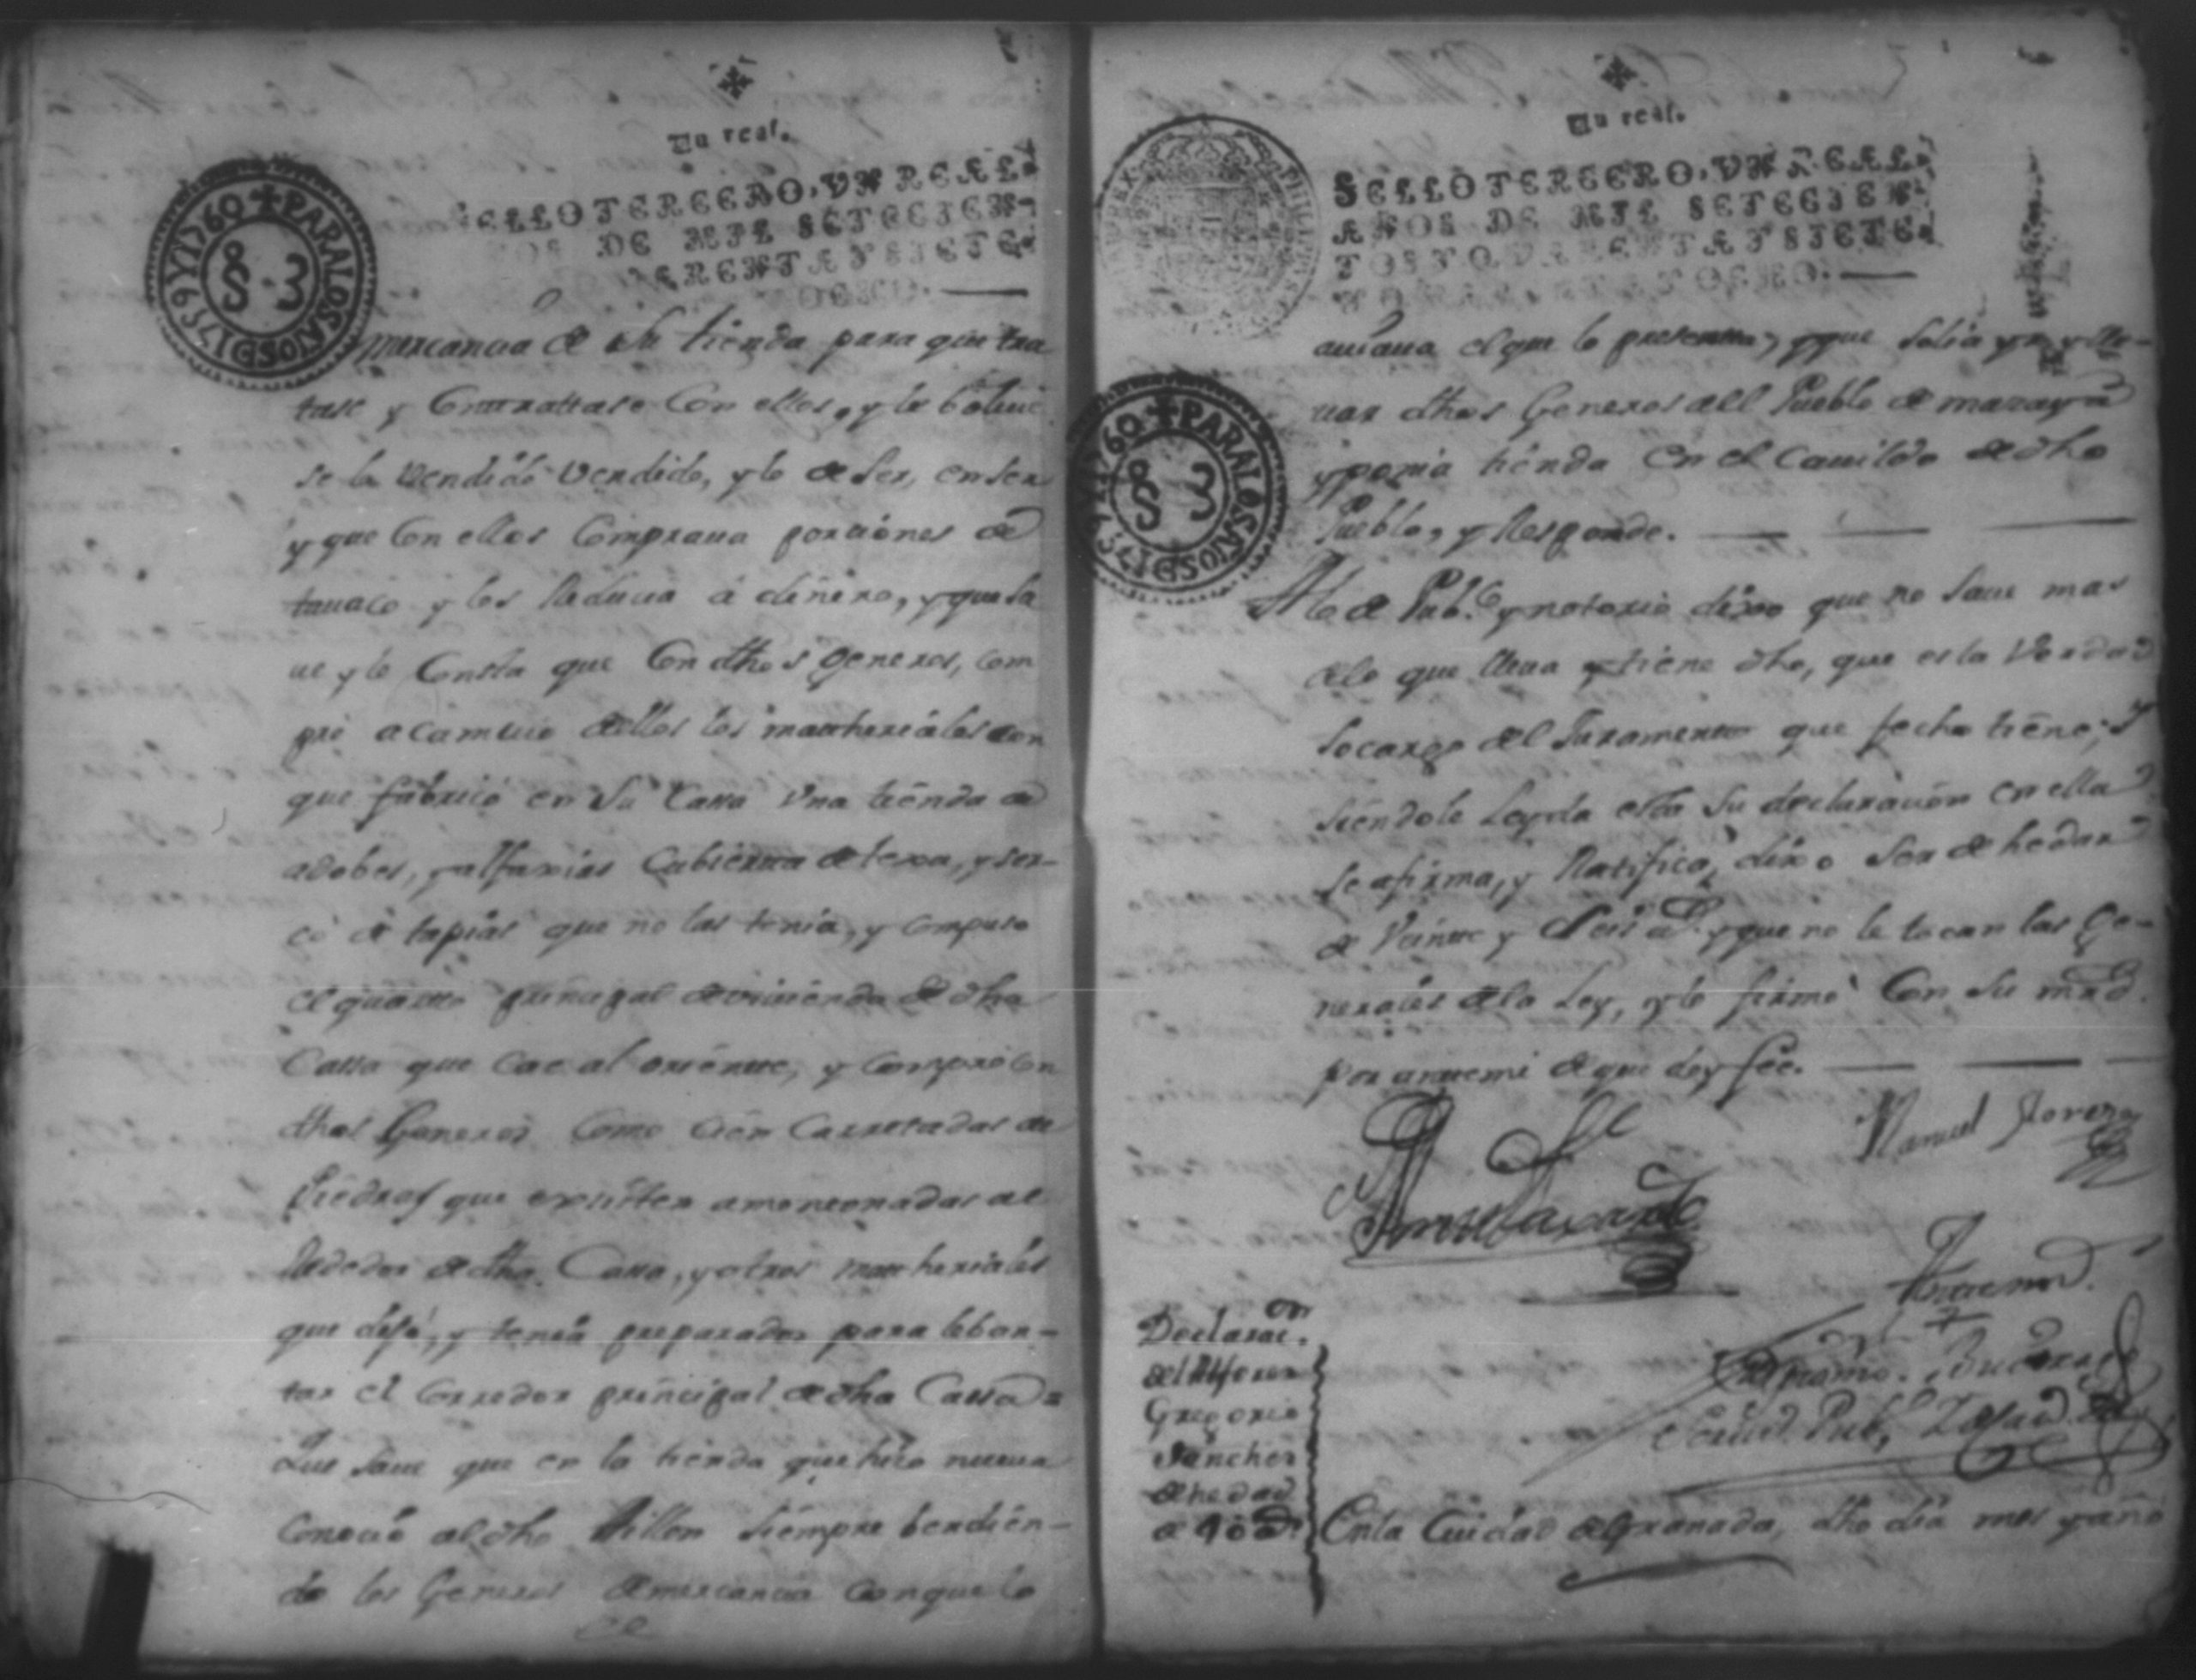 Un real.
SELLO TERCERO, UN REAL
AÑOS DE MIL SETECIEN
TOS QUARENTA Y SIETE
OCHO.
PARA LOS AÑOS DE 1759 Y 1760
S 3
marcancia de su tienda para que tra
tase y Contrattase Con ellos, y le bolvie
se lo Vendido Vendido, y lo de Ser, en ser
y que Con ellos Compraua porciones de
tauaco y los Reducia á dinero, y que sa
ue y le Consta que Con dhos generos, com
pró acamuio dellos los matheriales con
que fabricó en Su Cassa Vna tienda de
adobes, y alfaxias Cubierta de texa, y ser-
có de tapias que no las tenia, y compuso
el quarto principal de viuienda de dha
Cassa que Cae al oriente, y Compró con
dhos Generos Como Cien Carretadas de
Piedras que existen amontonadas al
Rededor de dha Cassa, y otros matheriales
que dejó, y tenia preparados para leban-
tar el Corredor principal de dha Cassa =
Que saue que en la tienda que hizo nueua
Conoció al dho Villon Siempre bendien-
do los Generos de mercancia con que lo
Un real.
SELLO TERCERO, UN REAL
AÑOS DE MIL SETECIEN
TOS Y QUARENTA Y SIETE
Y OCHO.
PARA LOS AÑOS DE 1759 Y 1760
S 3
auiaua el que lo presenta, y que Solia yr, y lle-
uar dhos Generos al Pueblo de masaya
y ponia tienda en el Cauildo de dho
Pueblo, y Responde.
A lo de Pubco y notorio dixo que no saue mas
de lo que lleua y tiene dho, que es la Verdad
Socargo del Juramento que fecho tiene, y
siendole Leyda esta su declaracion en ella
se afirma, y Ratificó, dixo Ser de hedad
de Veinte y Seis as y que no le tocan las Ge-
nerales de la Ley, y lo firmó Con Su mrd
por antemi de que doy fee.
Manuel
Antemi
Declaracon
del Alferes
Gregorio
Sanches
de hedad
de 40 as
En la Ciudad de Granada, dho dia mes y año